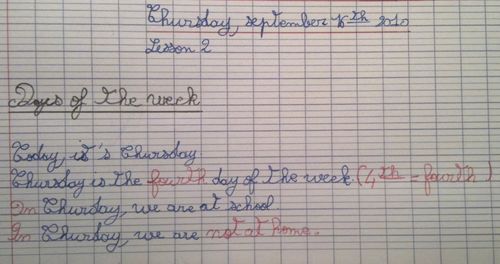 Thursday, september 16th 2010
Lesson 2
Days of the week
Today, it's Thursday.
Thursday is the fourth day of the week. (4th = fourth)
On Thursday, we are at school.
On Thursday, we are not at home.